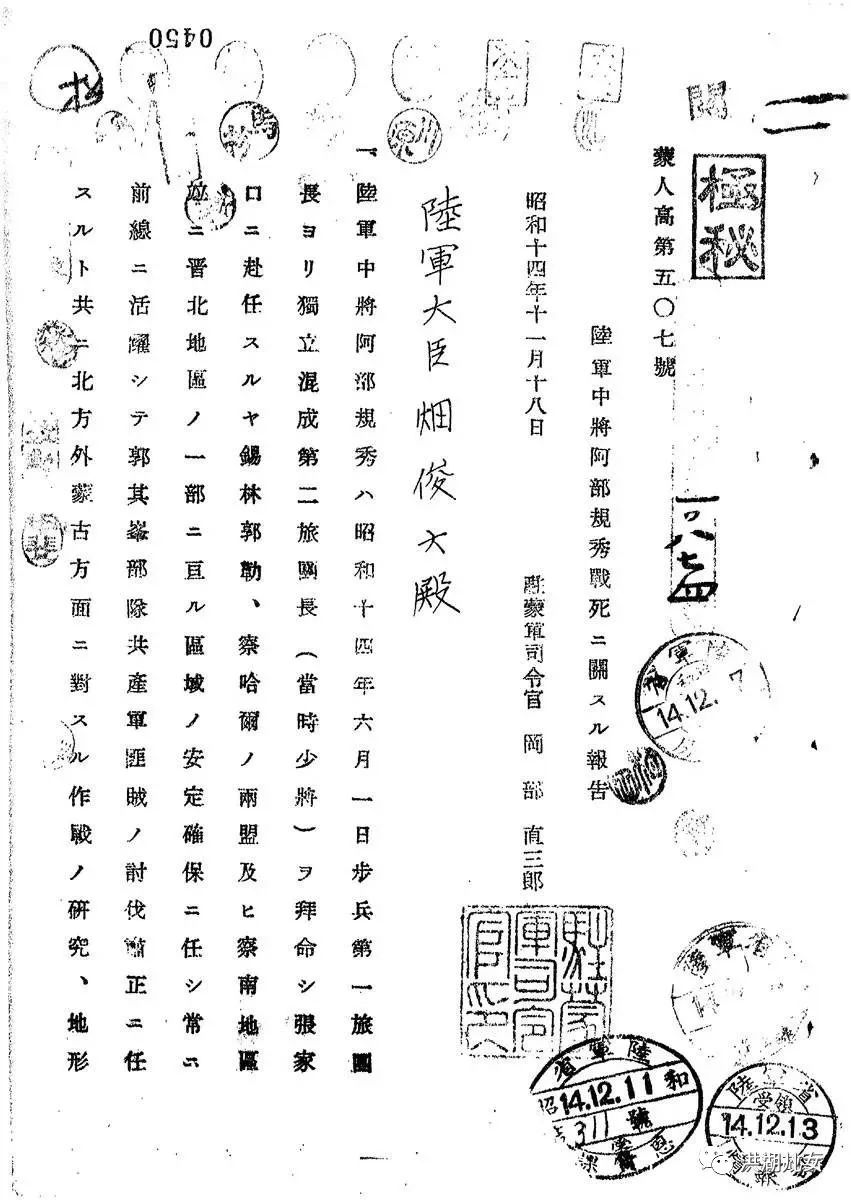 0450
極秘
蒙人高第五〇七號
陸軍中將阿部規秀戰死ニ關スル報告
昭和十四年十一月十八日
駐蒙軍司令官 岡部直三郎
陸軍大臣畑俊六殿
一、陸軍中將阿部規秀ハ昭和十四年六月一日步兵第一旅團
長ヨリ獨立混成第二旅團長(當時少將)ヲ拜命シ張家
口ニ赴任スルヤ錫林郭勒、察哈爾ノ兩盟及ヒ察南地區
竝ニ晋北地區ノ一部ニ亘ル區域ノ安定確保ニ任シ常ニ
前線ニ活躍シテ郭其峯部隊共產軍匪賊ノ討伐肅正ニ任
スルト共ニ北方外蒙古方面ニ對スル作戰ノ硏究、地形
陸軍省
14.12.7
駐蒙軍司令官之印
陸軍省
昭和
14.12.11
311號
恩賞課
陸軍省
受領
14.12.13
洪湖州安